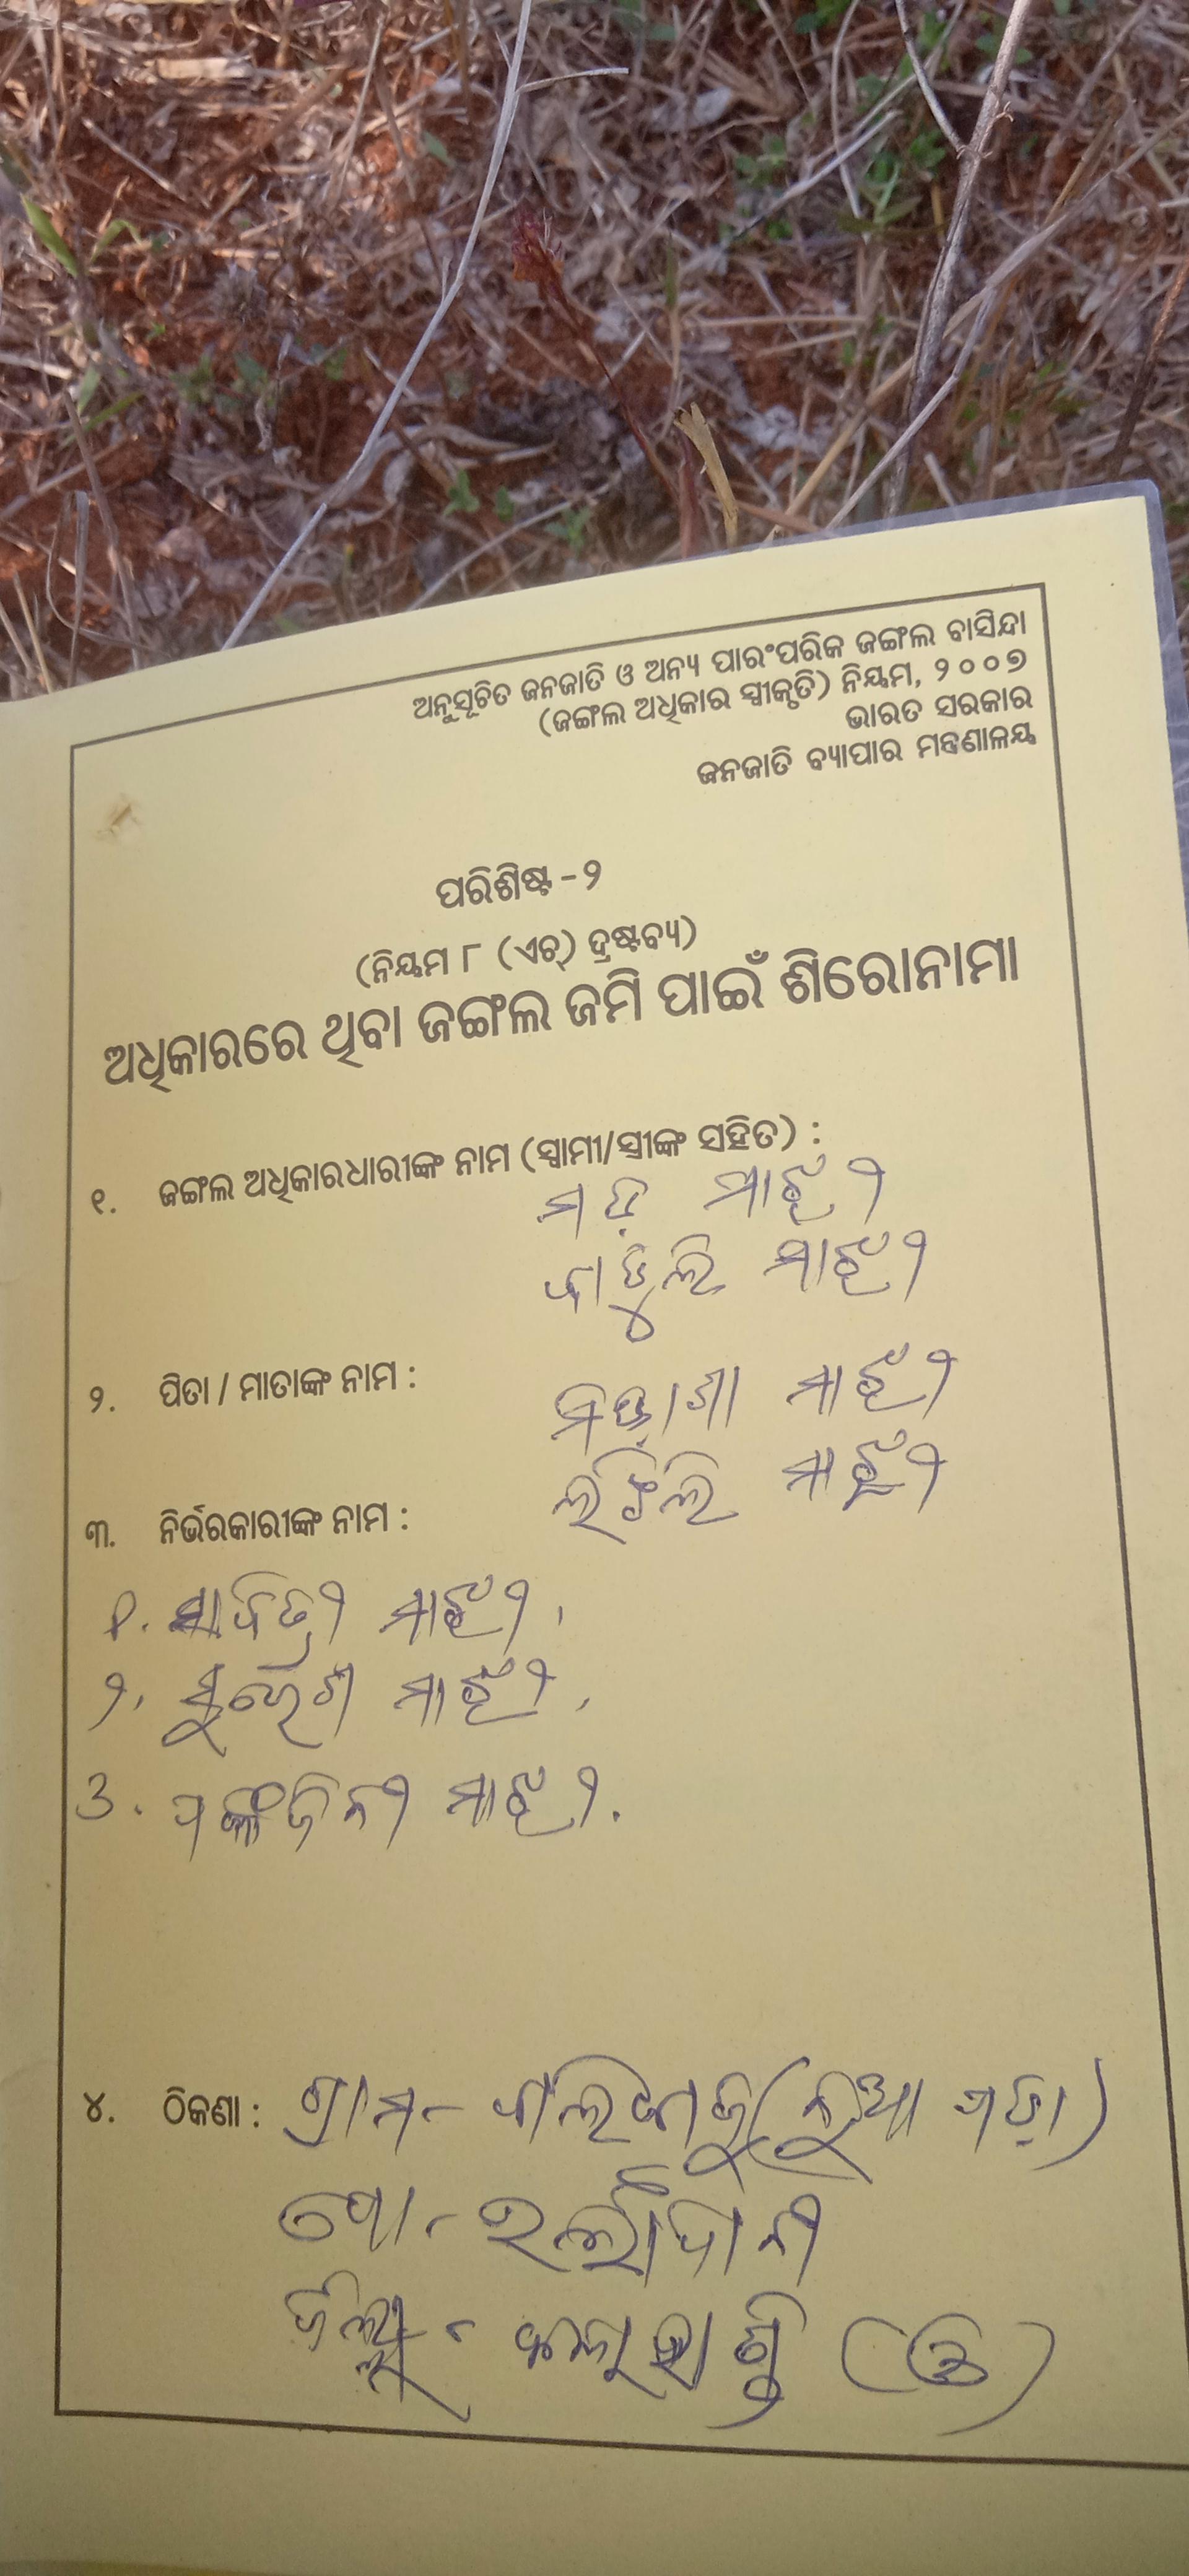 ଅନୁସୂଚିତ ଜନଜାତି ଓ ଅନ୍ୟ ପାରଂପରିକ ଜଙ୍ଗଲ ବାସିନ୍ଦା
(ଜଙ୍ଗଲ ଅଧିକାର ସ୍ୱୀକୃତି) ନିୟମ, ୨୦୦୭
ଭାରତ ସରକାର
ଜନଜାତି ବ୍ୟାପାର ମନ୍ତ୍ରଣାଳୟ
ପରିଶିଷ୍ଟ - ୨
(ନିୟମ ୮ (ଏଚ୍) ଦ୍ରଷ୍ଟବ୍ୟ)
ଅଧିକାରରେ ଥିବା ଜଙ୍ଗଲ ଜମି ପାଇଁ ଶିରୋନାମା
୧. ଜଙ୍ଗଲ ଅଧିକାରଧାରୀଙ୍କ ନାମ (ସ୍ୱାମୀ/ସ୍ତ୍ରୀଙ୍କ ସହିତ) :
ମାଝୀ
ମାଝୀ
୨. ପିତା / ମାତାଙ୍କ ନାମ :
ମାଝୀ
ମାଝୀ
୩. ନିର୍ଭରକାରୀଙ୍କ ନାମ :
୧. ସାବିତ୍ରୀ ମାଝୀ,
୨. ମାଝୀ,
୩. ପଙ୍କଜିନୀ ମାଝୀ.
୪. ଠିକଣା : ଗ୍ରାମ- (ନୂଆ ପଡ଼ା)
ପୋ-
ଜିଲ୍ଲା- କଳାହାଣ୍ଡି (ଓ)